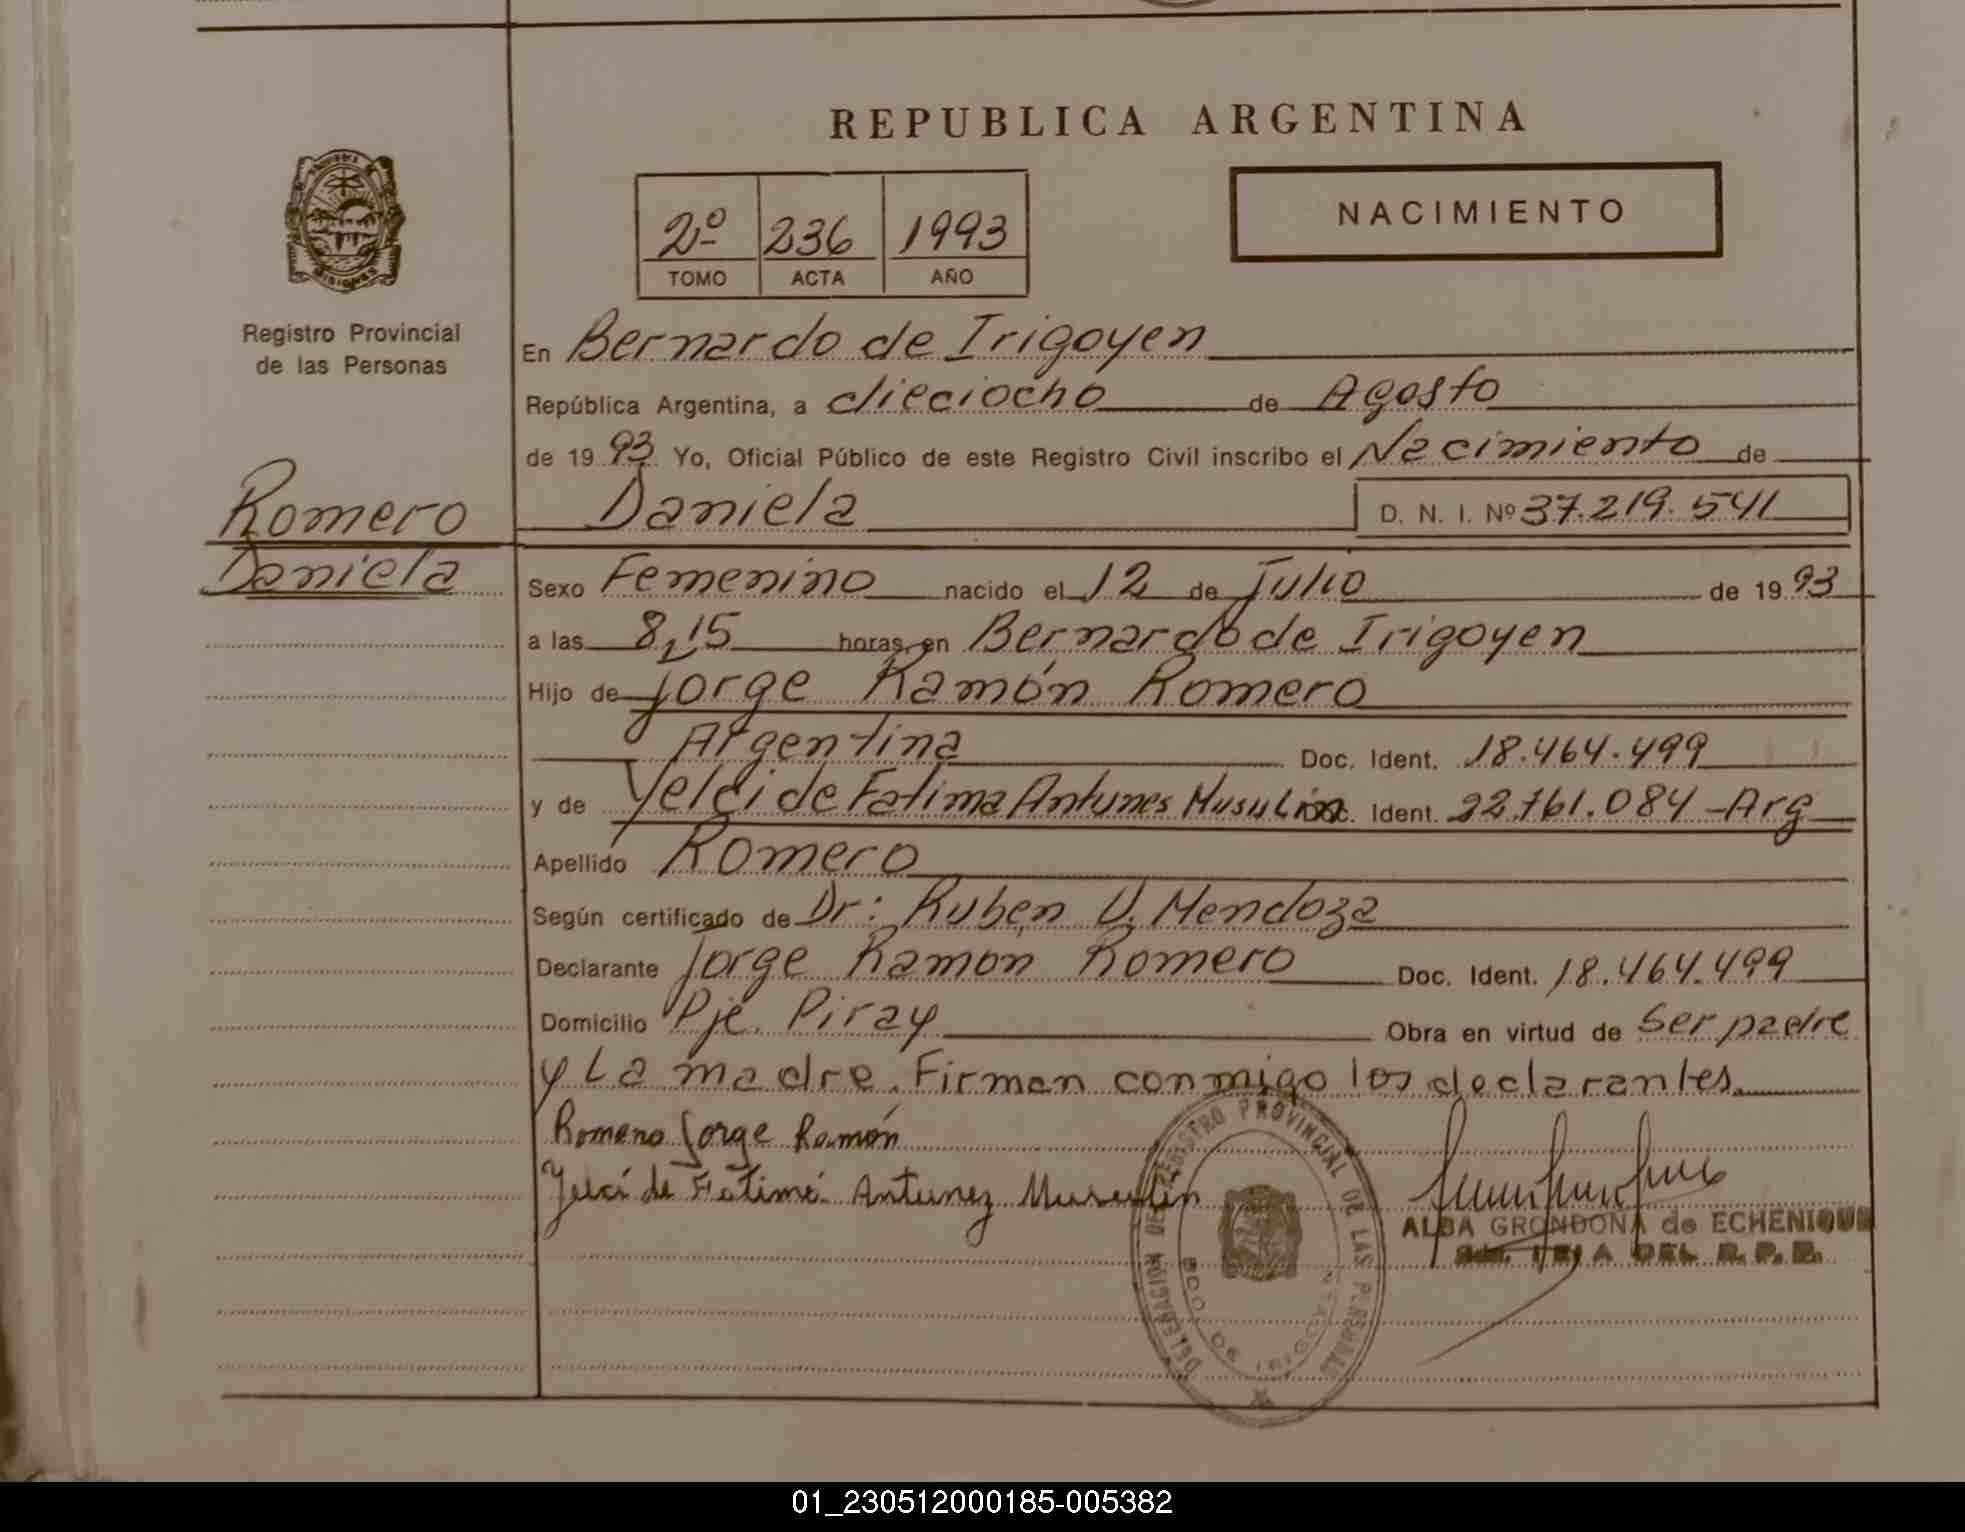 REPUBLICA ARGENTINA
2º 236 1993
TOMO ACTA AÑO
NACIMIENTO
MISIONES
Registro Provincial
de las Personas
Romero
Daniela
En Bernardo de Irigoyen
República Argentina, a dieciocho de Agosto
de 1993 Yo, Oficial Público de este Registro Civil inscribo el Nacimiento de
Daniela D. N. I. Nº 37.219.541
Sexo Femenino nacido el 12 de Julio de 1993
a las 8,15 horas, en Bernardo de Irigoyen
Hijo de Jorge Ramón Romero
Argentina Doc. Ident. 18.464.499
y de Yelci de Fatima Antunes Musulin Doc. Ident. 22.761.084 - Arg
Apellido Romero
Según certificado de Dr: Ruben U. Mendoza
Declarante Jorge Ramón Romero Doc. Ident. 18.464.499
Domicilio Pje. Piray Obra en virtud de Ser padre
y La madre. Firman conmigo los declarantes.
Romero Jorge Ramón
Yelci de Fátima Antunez Musulin
DELEGACION DEL REGISTRO PROVINCIAL DE LAS PERSONAS
BDO. DE IRIGOYEN
ALBA GRONDONA de ECHENIQUE
DEL R. P. P.
01_230512000185-005382